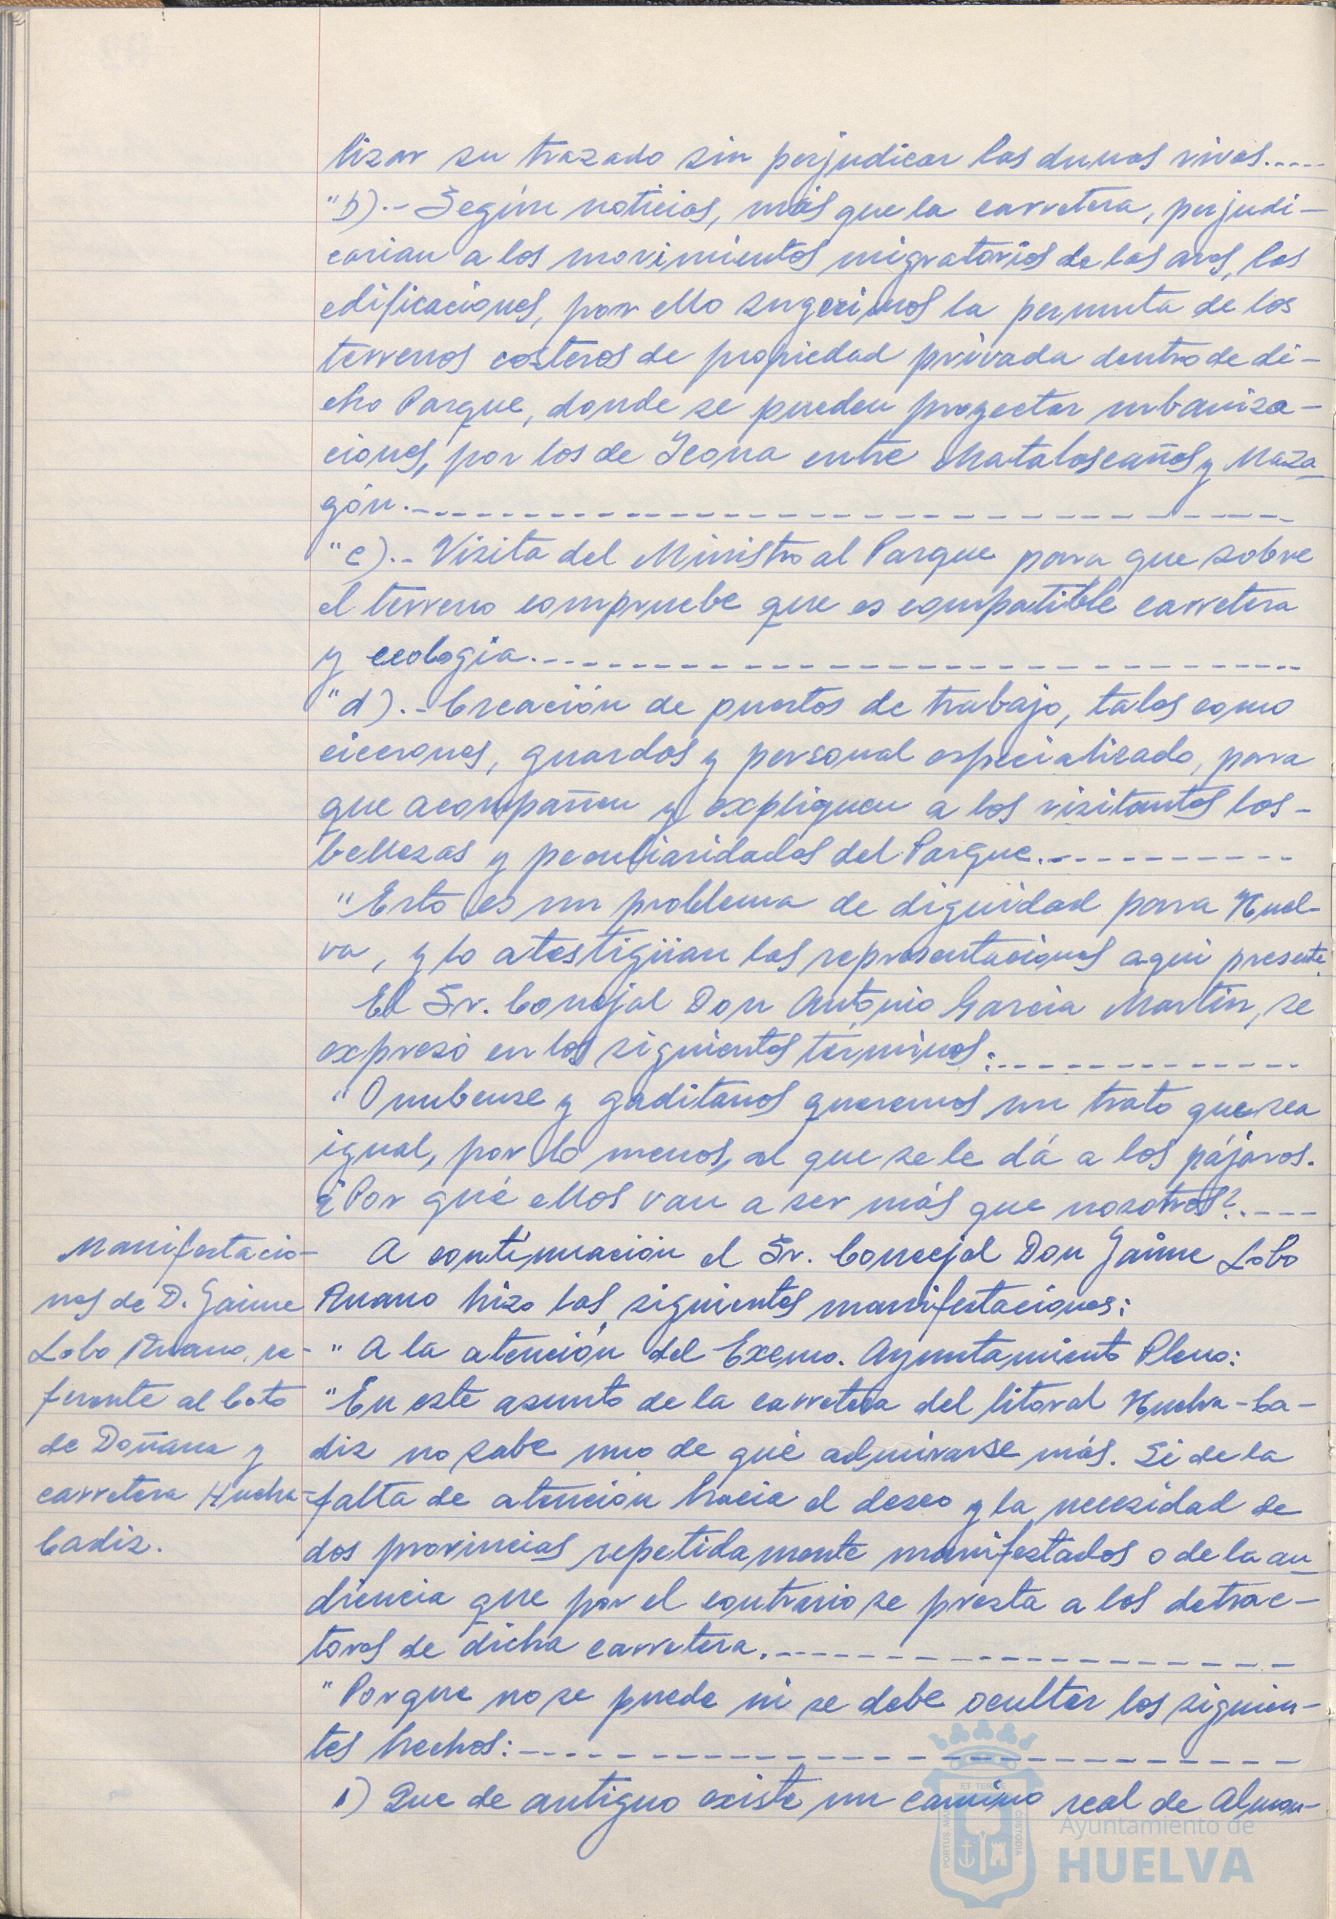 lizar su trazado sin perjudicar las dunas vivas.----
"b).- Según noticias, más que la carretera, perjudi-
carian a los movimientos migratorios de las aves, las
edificaciones, por ello sugerimos la permuta de los
terrenos costeros de propiedad privada dentro de di-
cho Parque, donde se pueden proyectar urbaniza-
ciones, por los de Icona entre Matalascañas y Maza
gón.------------------------------
"c).- Visita del Ministro al Parque para que sobre
el terreno compruebe que es compatible carretera
y ecologia.------------------------
"d).- Creación de puestos de trabajo, tales como
cicerones, guardas y personal especializado, para
que acompañen y expliquen a los visitantes las-
bellezas y peculiaridades del Parque.----------
"Esto es un problema de dignidad para Huel-
va, y lo atestigüan las representaciones aqui presente.
El Sr. Concejal Don Antonio Garcia Martin, se
expresó en los siguientes términos:------------
"Onubense y gaditanos queremos un trato que sea
igual, por lo menos, al que se le dá a los pájaros.
¿Por qué ellos van a ser más que nosotros?.----
Manifestacio-
nes de D. Jaime
Lobo Ruano, re-
ferente al Coto
de Doñana y
carretera Huelva-
Cadiz.
A continuación el Sr. Concejal Don Jaime Lobo
Ruano hizo las siguientes manifestaciones:
"A la atención del Excmo. Ayuntamiento Pleno:
"En este asunto de la carretera del litoral Huelva-Ca-
diz no sabe uno de qué admirarse más. Si de la
falta de atención hacia el deseo y la necesidad de
dos provincias repetidamente manifestados o de la au
diencia que por el contrario se presta a los detrac-
tores de dicha carretera.------------------
"Porque no se puede ni se debe ocultar los siguien-
tes hechos:--------------------------
1) Que de antiguo existe un camino real de Almon-
ET TERRAE
PORTUS MARIS
CUSTODIA
Ayuntamiento de
HUELVA